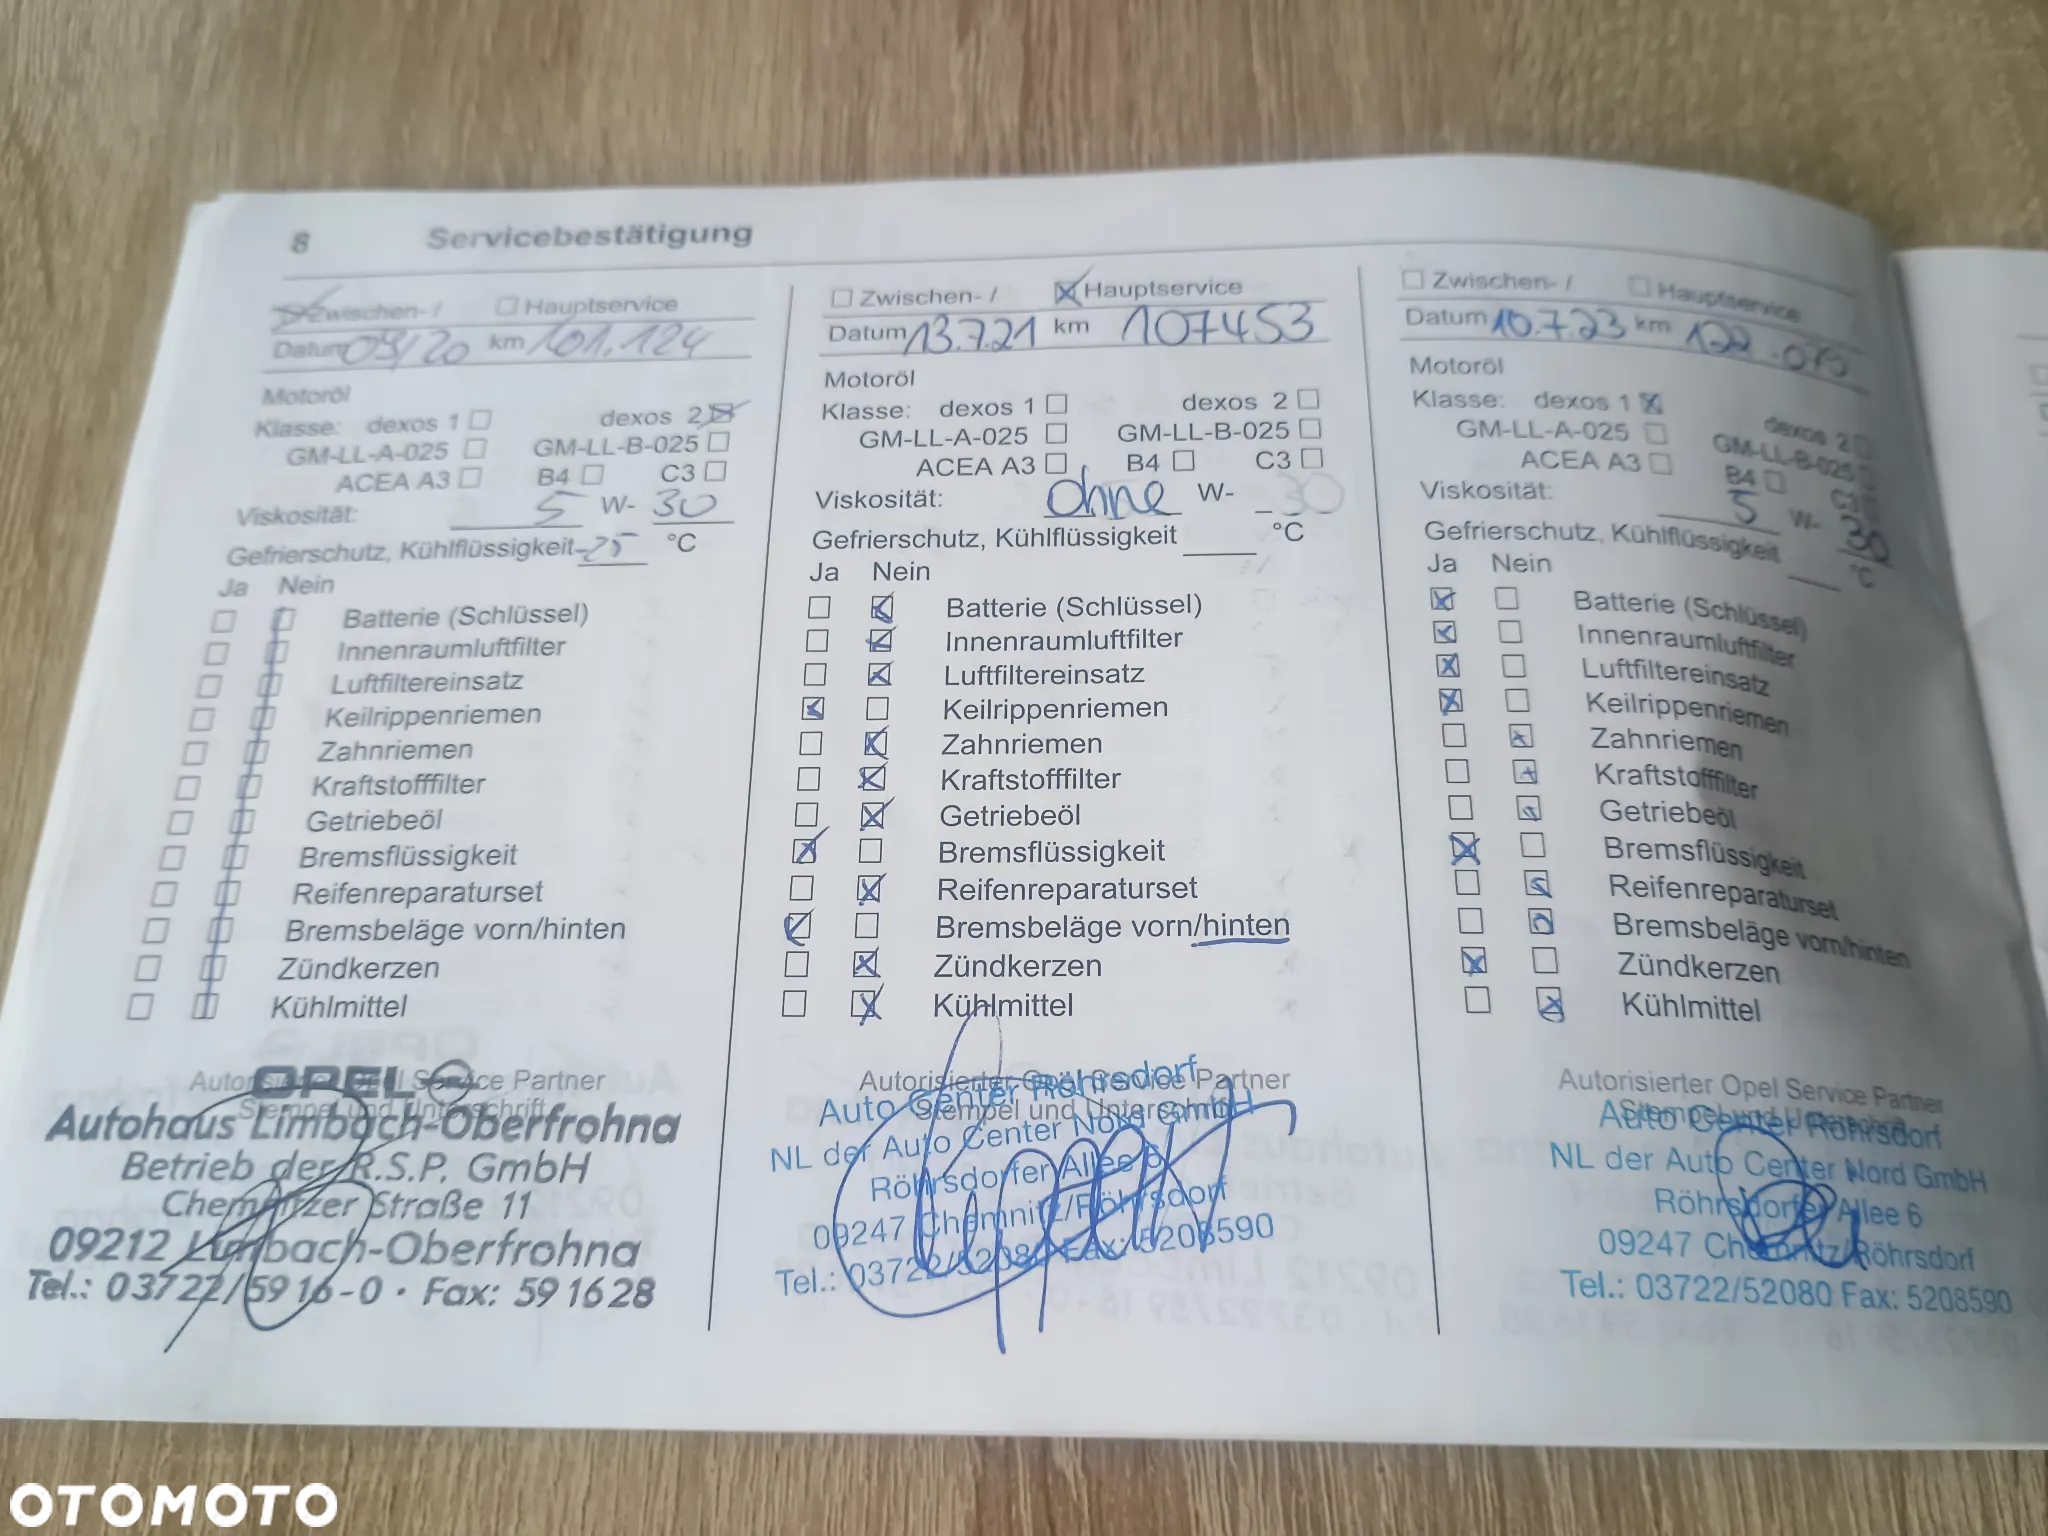 8 Servicebestätigung
Zwischen- / Hauptservice
Datum 09/20 km 101.124
Motoröl
Klasse: dexos 1 dexos 2
GM-LL-A-025 GM-LL-B-025
ACEA A3 B4 C3
Viskosität: 5 W- 30
Gefrierschutz, Kühlflüssigkeit -25 °C
Ja Nein
Batterie (Schlüssel)
Innenraumluftfilter
Luftfiltereinsatz
Keilrippenriemen
Zahnriemen
Kraftstofffilter
Getriebeöl
Bremsflüssigkeit
Reifenreparaturset
Bremsbeläge vorn/hinten
Zündkerzen
Kühlmittel
Autorisierter Opel Service Partner
Stempel und Unterschrift
OPEL
Autohaus Limbach-Oberfrohna
Betrieb der R.S.P. GmbH
Chemnitzer Straße 11
09212 Limbach-Oberfrohna
Tel.: 03722/5916-0 · Fax: 591628
Zwischen- / Hauptservice
Datum 13.7.21 km 107453
Motoröl
Klasse: dexos 1 dexos 2
GM-LL-A-025 GM-LL-B-025
ACEA A3 B4 C3
Viskosität: ohne W- 30
Gefrierschutz, Kühlflüssigkeit °C
Ja Nein
Batterie (Schlüssel)
Innenraumluftfilter
Luftfiltereinsatz
Keilrippenriemen
Zahnriemen
Kraftstofffilter
Getriebeöl
Bremsflüssigkeit
Reifenreparaturset
Bremsbeläge vorn/hinten
Zündkerzen
Kühlmittel
Autorisierter Opel Service Partner
Stempel und Unterschrift
Auto Center Röhrsdorf
NL der Auto Center Nord GmbH
Röhrsdorfer Allee 6
09247 Chemnitz/Röhrsdorf
Tel.: 03722/52080 Fax: 5208590
Zwischen- / Hauptservice
Datum 10.7.23 km 122.075
Motoröl
Klasse: dexos 1 dexos 2
GM-LL-A-025 GM-LL-B-025
ACEA A3 B4 C3
Viskosität: 5 W- 30
Gefrierschutz, Kühlflüssigkeit °C
Ja Nein
Batterie (Schlüssel)
Innenraumluftfilter
Luftfiltereinsatz
Keilrippenriemen
Zahnriemen
Kraftstofffilter
Getriebeöl
Bremsflüssigkeit
Reifenreparaturset
Bremsbeläge vorn/hinten
Zündkerzen
Kühlmittel
Autorisierter Opel Service Partner
Stempel und Unterschrift
Auto Center Röhrsdorf
NL der Auto Center Nord GmbH
Röhrsdorfer Allee 6
09247 Chemnitz/Röhrsdorf
Tel.: 03722/52080 Fax: 5208590
OTOMOTO